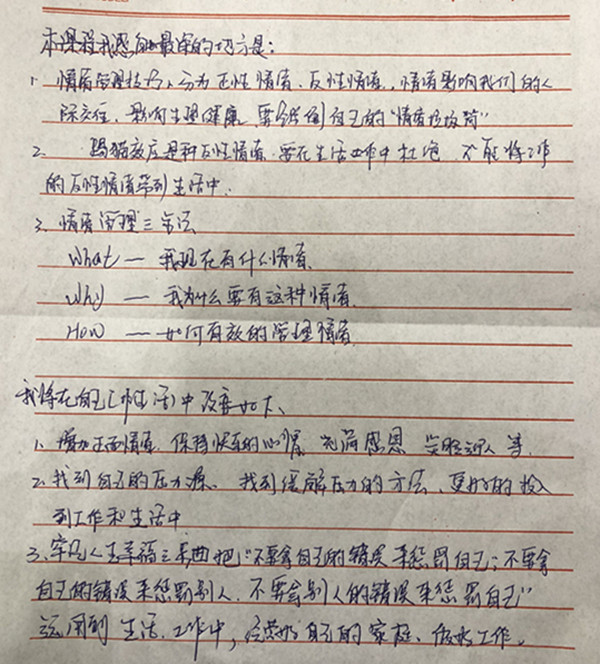 本课程我感触最深的地方是：
1. 情绪管理技巧、分为正性情绪、反性情绪，情绪影响我们的人
际交往，影响生理健康，要找到自己的"情绪垃圾筒"
2. 踢猫效应是种反性情绪，要在生活工作中杜绝，不能将工作
的反性情绪带到生活中.
3. 情绪管理三方法
What — 我现在有什么情绪.
Why — 我为什么要有这种情绪.
How — 如何有效的管理情绪
我将在自己工作(生活)中改变如下、
1. 增加正面情绪，保持快乐的心情，充满感恩 笑脸迎人 等.
2. 我到自己的压力源、找到缓解压力的方法，更好的投入
到工作和生活中
3. 牢记人生幸福三步曲把"不要拿自己的错误来惩罚自己；不要拿
自己的错误来惩罚别人，不要拿别人的错误来惩罚自己"
运用到 生活、工作中, 经营好自己的家庭、做好工作。